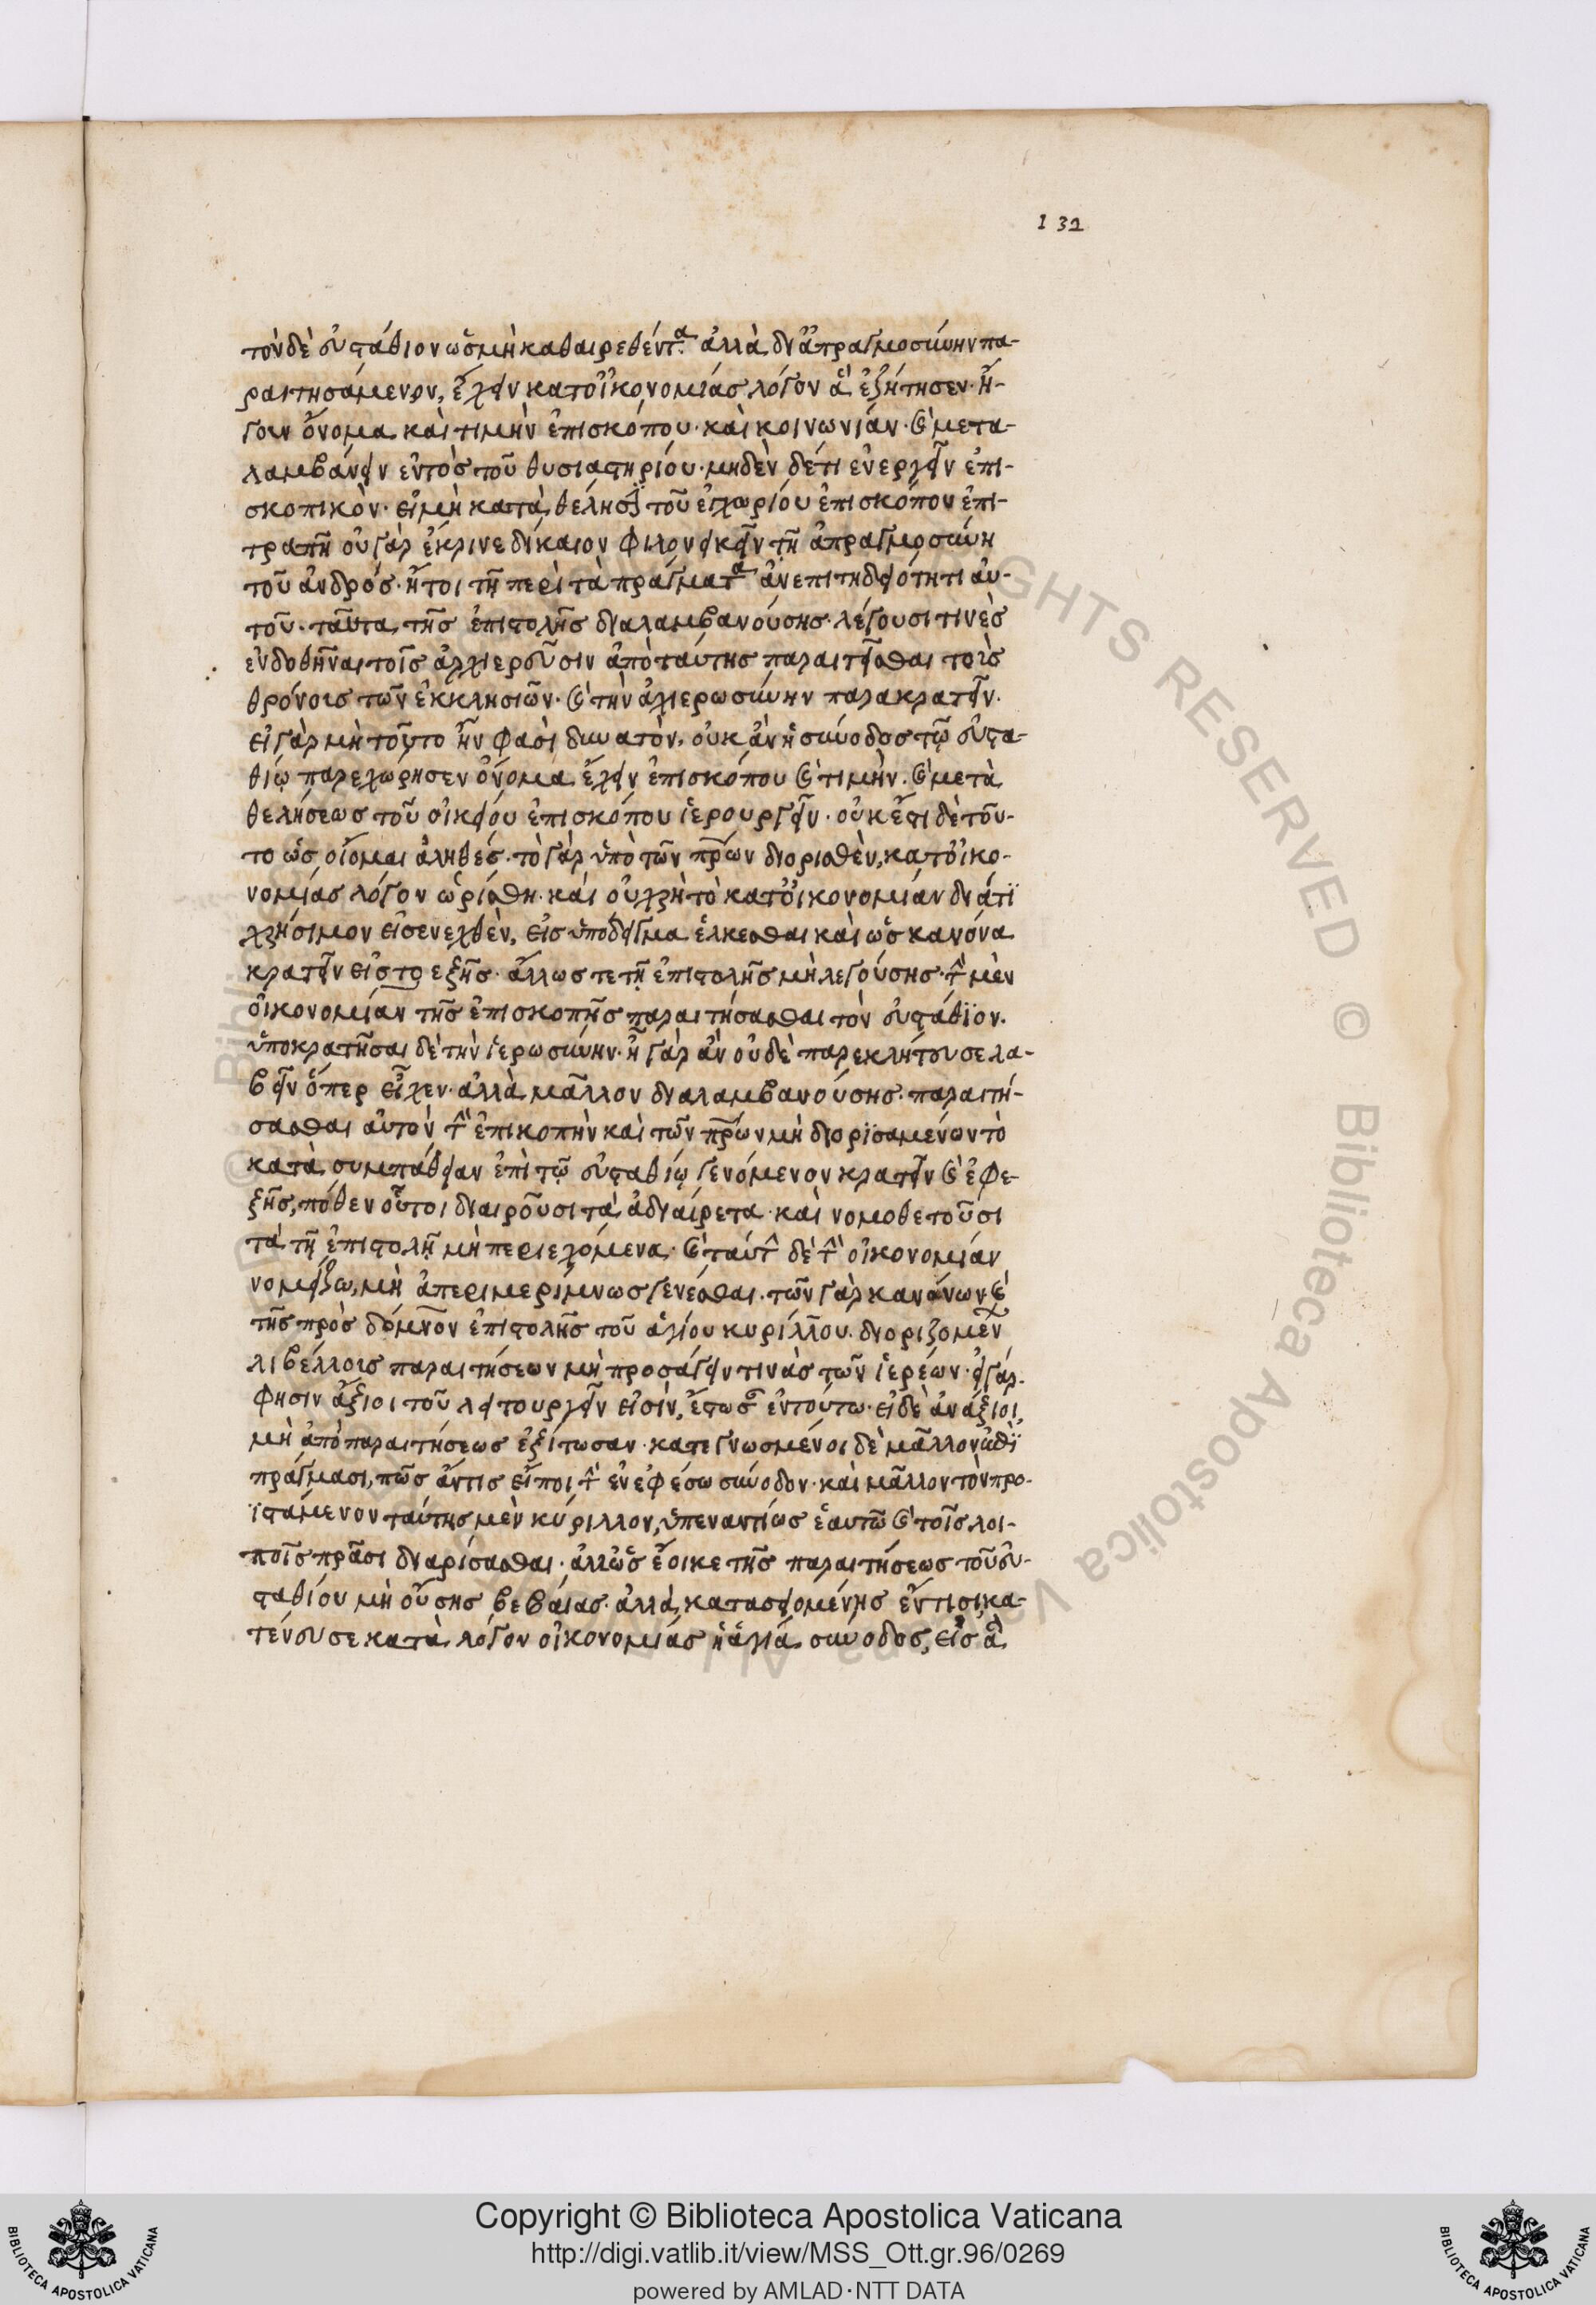 132
τὸν δὲ εὐστάθιον ὡς μὴ καθαιρεθέντα. ἀλλὰ δι' ἀπραγμοσύνην πα-
ραιτησάμενον, ἔχειν κατ' οἰκονομίας λόγον ἃ ἐζήτησεν. ἤ-
γουν ὄνομα καὶ τιμὴν ἐπισκόπου. καὶ κοινωνίαν. καὶ μετα-
λαμβάνειν ἐντὸς τοῦ θυσιαστηρίου. μηδὲν δέτι ἐνεργεῖν ἐπι-
σκοπικὸν. εἰ μὴ κατὰ θέλησιν τοῦ ἐγχωρίου ἐπισκόπου ἐπι-
τραπῆ οὐ γὰρ ἔκρινε δίκαιον φιλονεικεῖν τῇ ἀπραγμοσύνη
τοῦ ἀνδρός. ἤτοι τῇ περὶ τὰ πράγματα ἀνεπιτηδειότητι αὐ-
τοῦ. ταῦτα τῆς ἐπιστολῆς διαλαμβανούσης. λέγουσι τινὲς
ἐνδοθῆναι τοῖς ἀρχιερεῦσιν ἀπὸ ταύτης παραιτεῖσθαι τοὺς
θρόνους τῶν ἐκκλησιῶν. καὶ τὴν ἀρχιερωσύνην παρακρατεῖν.
εἰ γὰρ μὴ τοῦτο ἦν φασὶ δυνατὸν, οὐκ ἂν ἡ σύνοδος τῷ εὐστα-
θίῳ παρεχώρησεν ὄνομα ἔχειν ἐπισκόπου καὶ τιμὴν. καὶ μετὰ
θελήσεως τοῦ οἰκείου ἐπισκόπου ἱερουργεῖν. οὐκ ἔστι δὲ τοῦ-
το ὡς οἶομαι ἀληθές. τὸ γὰρ ὑπὸ τῶν πρων διορισθὲν, κατ' οἰκο-
νομίας λόγον ὡρίσθη. καὶ οὐ χρὴ τὸ κατ' οἰκονομίαν διά τι
χρήσιμον εἰσενεχθὲν, εἰς ὑπόδειγμα ἕλκεσθαι καὶ ὡς κανόνα
κρατεῖν εἰς το εξῆς. ἄλλως τε τῇ ἐπιστολῆς μὴ λεγούσης. τὴν μὲν
οἰκονομίαν τῆς ἐπισκοπῆς παραιτήσασθαι τὸν εὐστάθιον.
ὑποκρατῆσαι δὲ τὴν ἱερωσύνην. ἢ γὰρ ἂν οὐδὲ παρεκλήτευσε λα-
βεῖν ὅπερ εἶχεν. ἀλλὰ μᾶλλον διαλαμβανούσης. παραιτή-
σασθαι αὐτὸν τὴν ἐπικοπὴν καὶ τῶν πρων μὴ διορισαμένων τὸ
κατὰ συμπάθειαν ἐπὶ τῷ εὐσταθίῳ γενόμενον κρατεῖν καὶ ἐφε-
ξῆς, πόθεν οὗτοι διαιροῦσι τὰ ἀδιαίρετα. καὶ νομοθετοῦσι
τὰ τῇ ἐπιστολῇ μὴ περιεχόμενα. καὶ ταύτην δὲ τὴν οἰκονομίαν
νομίζω, μὴ ἀπεριμερίμνως γενέσθαι. τῶν γὰρ κανόνων καὶ
τῆς πρὸς δόμνον ἐπιστολῆς τοῦ ἁγίου κυρίλλου. διοριζομένων
λιβέλλους παραιτήσεων μὴ προσάγειν τινὰς τῶν ἱερέων. εἰ γάρ
φησιν ἄξιοι τοῦ λειτουργεῖν εἰσὶν, ἔστωσαν ἐν τούτω. εἰ δὲ ἀνάξιοι,
μὴ ἀπὸ παραιτήσεως ἐξίτωσαν. κατεγνωσμένοι δὲ μᾶλλον ἐπὶ
πράγμασι, πῶς ἄν τις εἴποι τὴν ἐν ἐφέσω σύνοδον. καὶ μᾶλλον τὸν προ-
ϊστάμενον ταύτης μὲν κύριλλον, ὑπεναντίως ἑαυτῶ καὶ τοῖς λοι-
ποῖς πρᾶσι διαρίσασθαι. ἀλλ' ὡς ἔοικε τῆς παραιτήσεως τοῦ εὐ-
σταθίου μὴ οὔσης βεβαίας. ἀλλὰ κατασειομένης ἔν τισι, κα-
τένευσε κατὰ λόγον οἰκονομίας ἡ ἁγία σύνοδος, εἰς ἃ